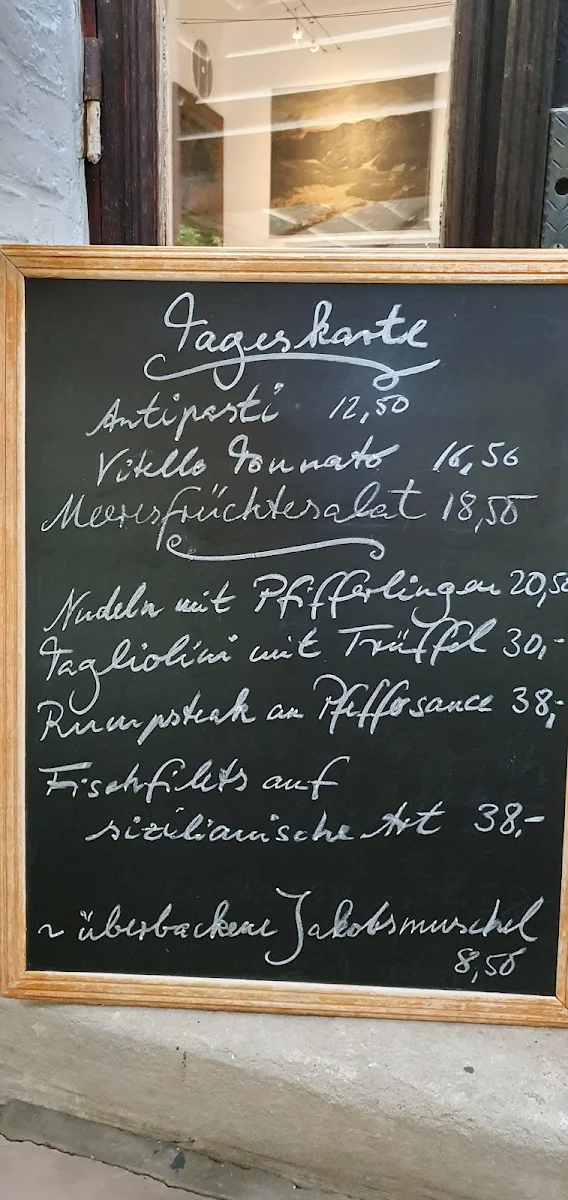 Tageskarte
Antipasti 12,50
Vitello Tonnato 16,50
Meeresfrüchtesalat 18,50
Nudeln mit Pfifferlingen 20,50
Tagliolini mit Trüffel 30,-
Rumpsteak an Pfeffersauce 38,-
Fischfilets auf
sizilianische Art 38,-
~ überbackene Jakobsmuschel
8,50